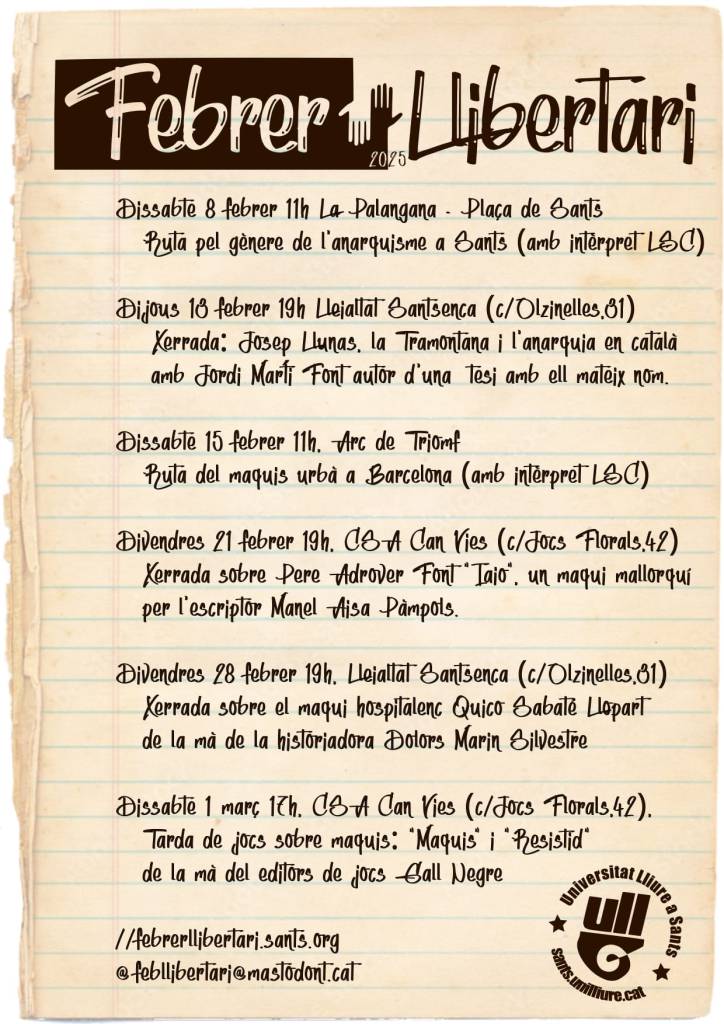 Febrer Llibertari
2025
Dissabte 8 febrer 11h La Palangana - Plaça de Sants
Ruta pel gènere de l'anarquisme a Sants (amb intèrpret LSC)
Dijous 13 febrer 19h Lleialtat Santsenca (c/Olzinelles,31)
Xerrada: Josep Llunas, la Tramontana i l'anarquia en català
amb Jordi Martí Font autor d'una tesi amb ell mateix nom.
Dissabte 15 febrer 11h, Arc de Triomf
Ruta del maquis urbà a Barcelona (amb intèrpret LSC)
Divendres 21 febrer 19h, CSA Can Vies (c/Jocs Florals,42)
Xerrada sobre Pere Adrover Font "Iaio", un maqui mallorquí
per l'escriptor Manel Aisa Pàmpols.
Divendres 28 febrer 19h, Lleialtat Santsenca (c/Olzinelles,31)
Xerrada sobre el maqui hospitalenc Quico Sabaté Llopart
de la mà de la historiadora Dolors Marin Silvestre
Dissabte 1 març 17h, CSA Can Vies (c/Jocs Florals,42),
Tarda de jocs sobre maquis: "Maquis" i "Resistid"
de la mà del editors de jocs Gall Negre
//febrerllibertari.sants.org
@febllibertari@mastodont.cat
Universitat Lliure a Sants
ull
sants.unilliure.cat